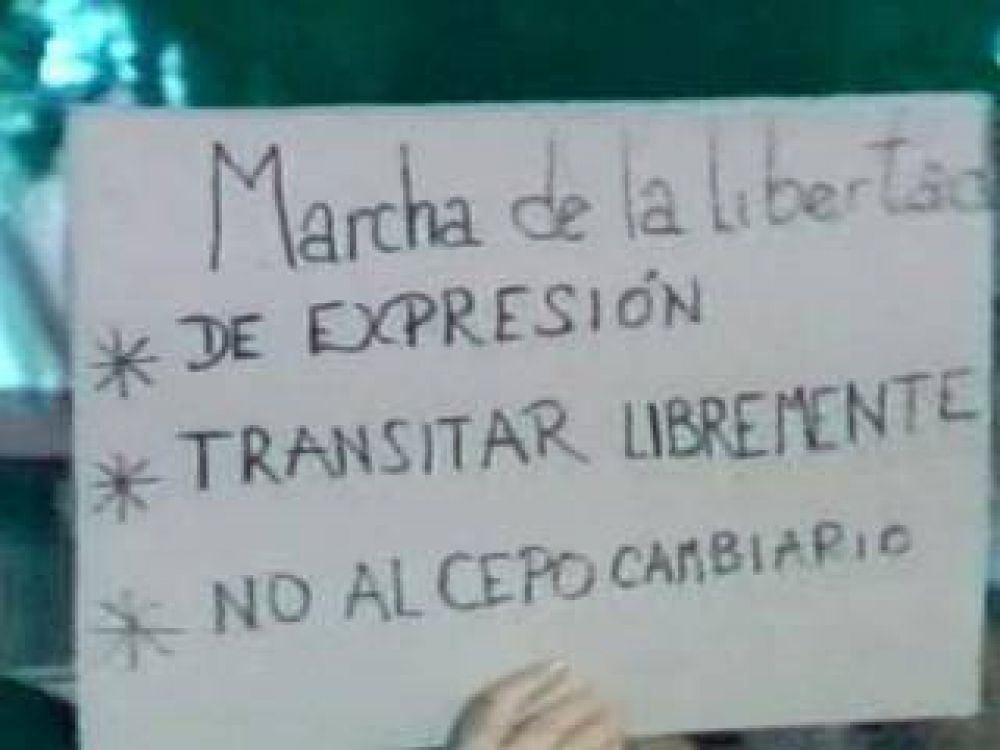 Marcha de la libertad
* DE EXPRESIÓN
* TRANSITAR LIBREMENTE
* NO AL CEPO CAMBIARIO